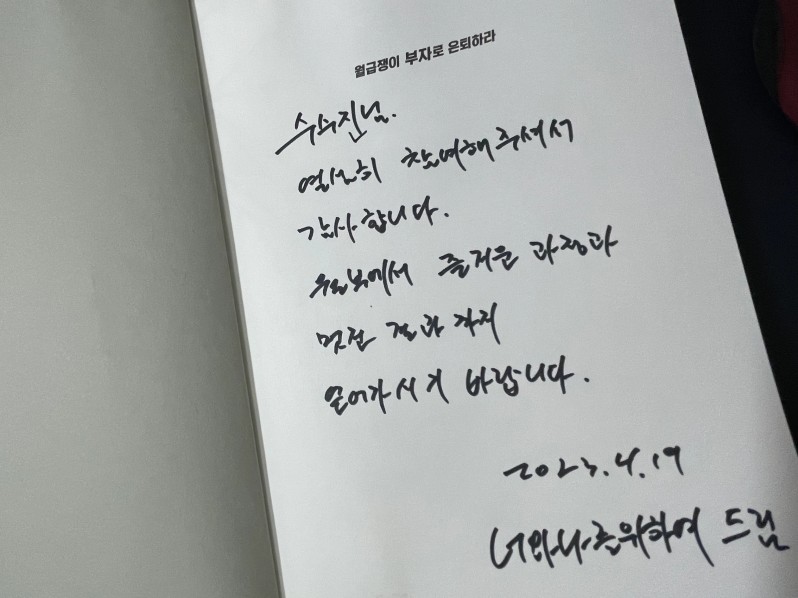 월급쟁이 부자로 은퇴하라
수의진님.
열심히 참여해주셔서
감사합니다.
월부에서 즐거운 과정과
멋진 결과 까지
얻어가시기 바랍니다.
2023.4.19
너와나를위하여 드림